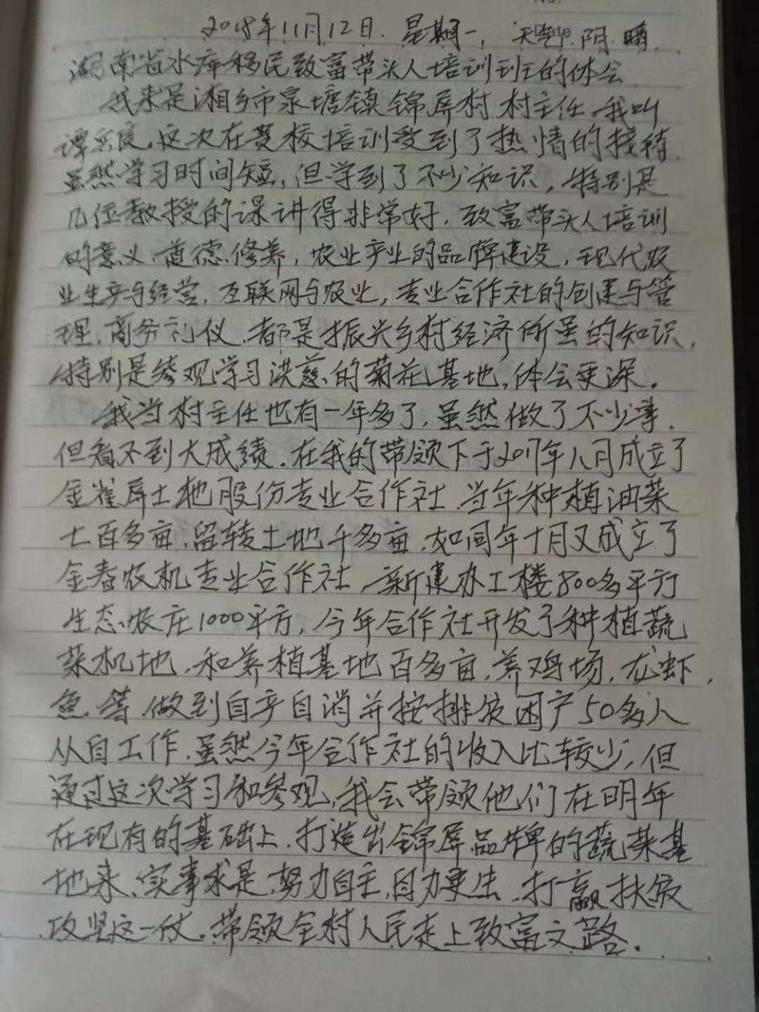 2018年11月12日. 星期一, 天气阴.晴
湖南省水库移民致富带头人培训班的体会
我来是湘乡市泉塘镇锦屏村村主任.我叫
这次在党校培训受到了热情的接待
虽然学习时间短,但学到了不少知识,特别是
几位教授的课讲得非常好.致富带头人培训
的意义.道德.修养,农业产业的品牌建设,现代农
业生产与经营.互联网与农业,专业合作社的创建与管
理.商务礼仪.都是振兴乡村经济所虽的知识,
特别是参观学习洪慈的菊花基地,体会更深.
我当村主任也有一年多了,虽然做了不少事.
但看不到大成绩.在我的带领下于2017年八月成立了
金雀屏土地股份专业合作社.当年种植油菜
七百多亩.留转土地千多亩.如同年十月又成立了
金春农机专业合作社,新建办工楼800多平方
生态农庄1000平方,今年合作社开发了种植蔬
菜机地.和养植基地百多亩.养鸡场,龙虾,
鱼.等.做到自产自消并按排贫困户50多人
从自工作.虽然今年合作社的收入比较少,但
通过这次学习和参观,我会带领他们在明年
在现有的基础上.打造出锦屏品牌的蔬菜基
地来.实事求是.努力自主,自力更生.打赢扶贫
攻坚这一仗.带领全村人民走上致富之路.